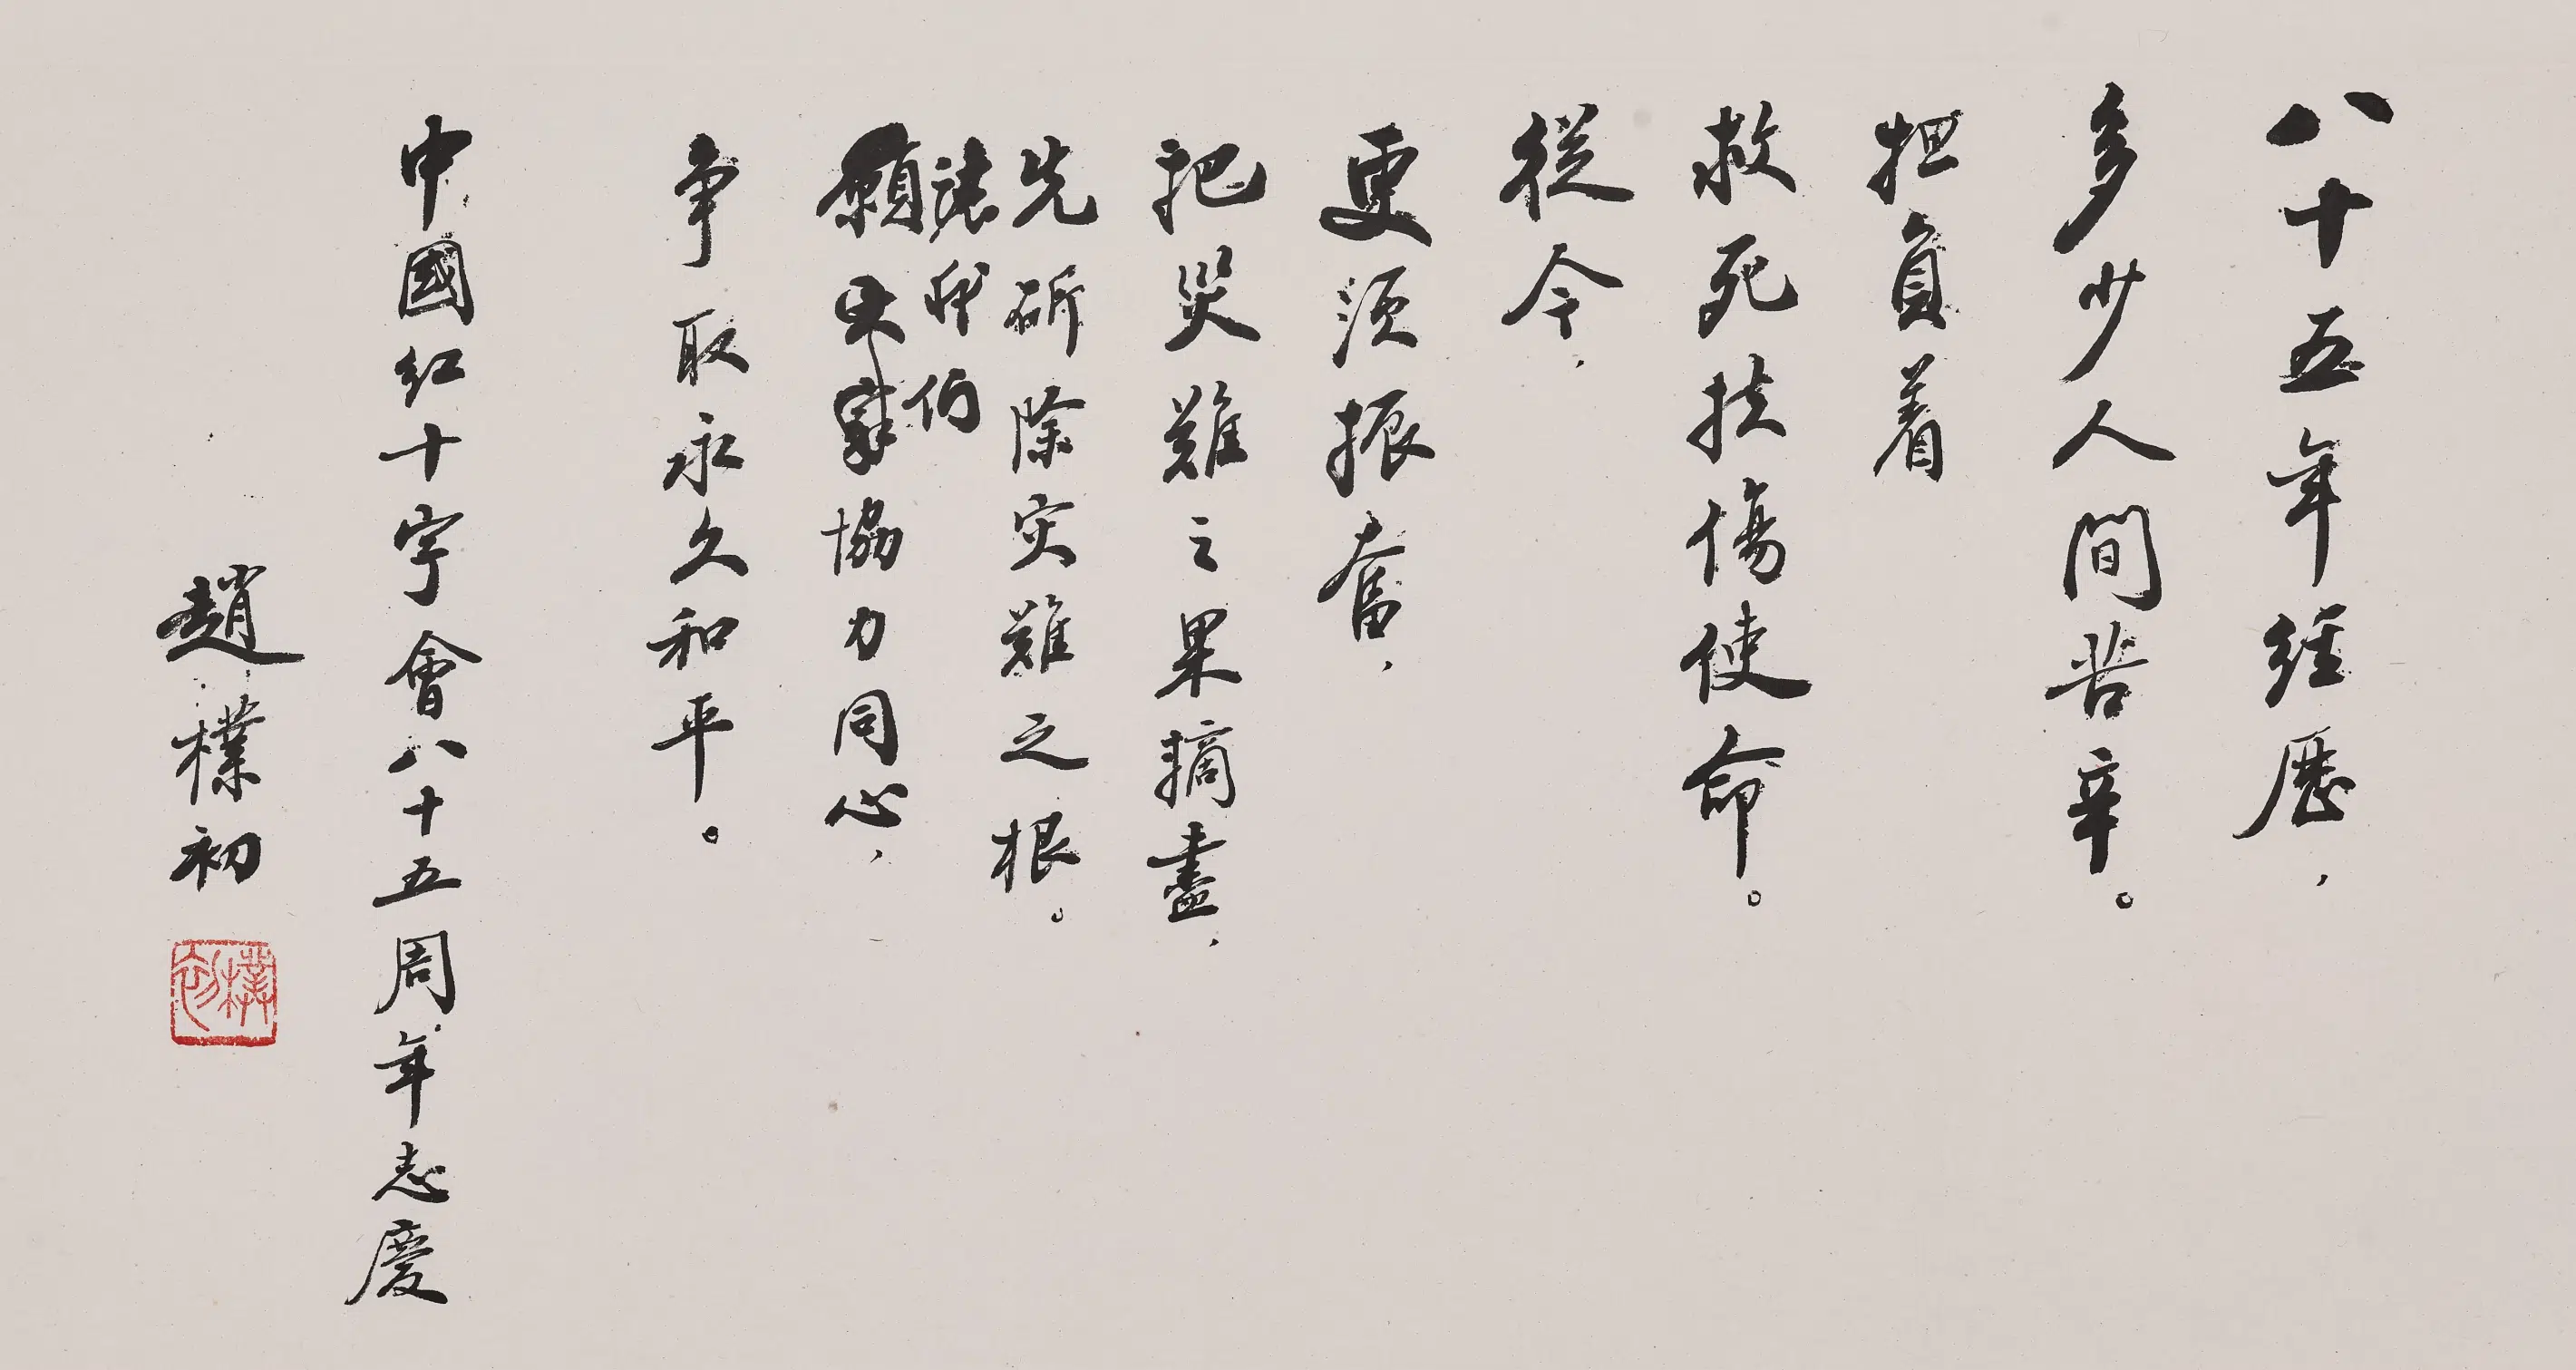 八十五年經歷，
多少人間苦辛。
担負着
救死扶傷使命。
從今，
更須振奮，
把災難之果摘盡，
先斫除灾難之根。
讓我們
願大家協力同心，
争取永久和平。
中國红十字會八十五周年志慶
趙樸初
樸初